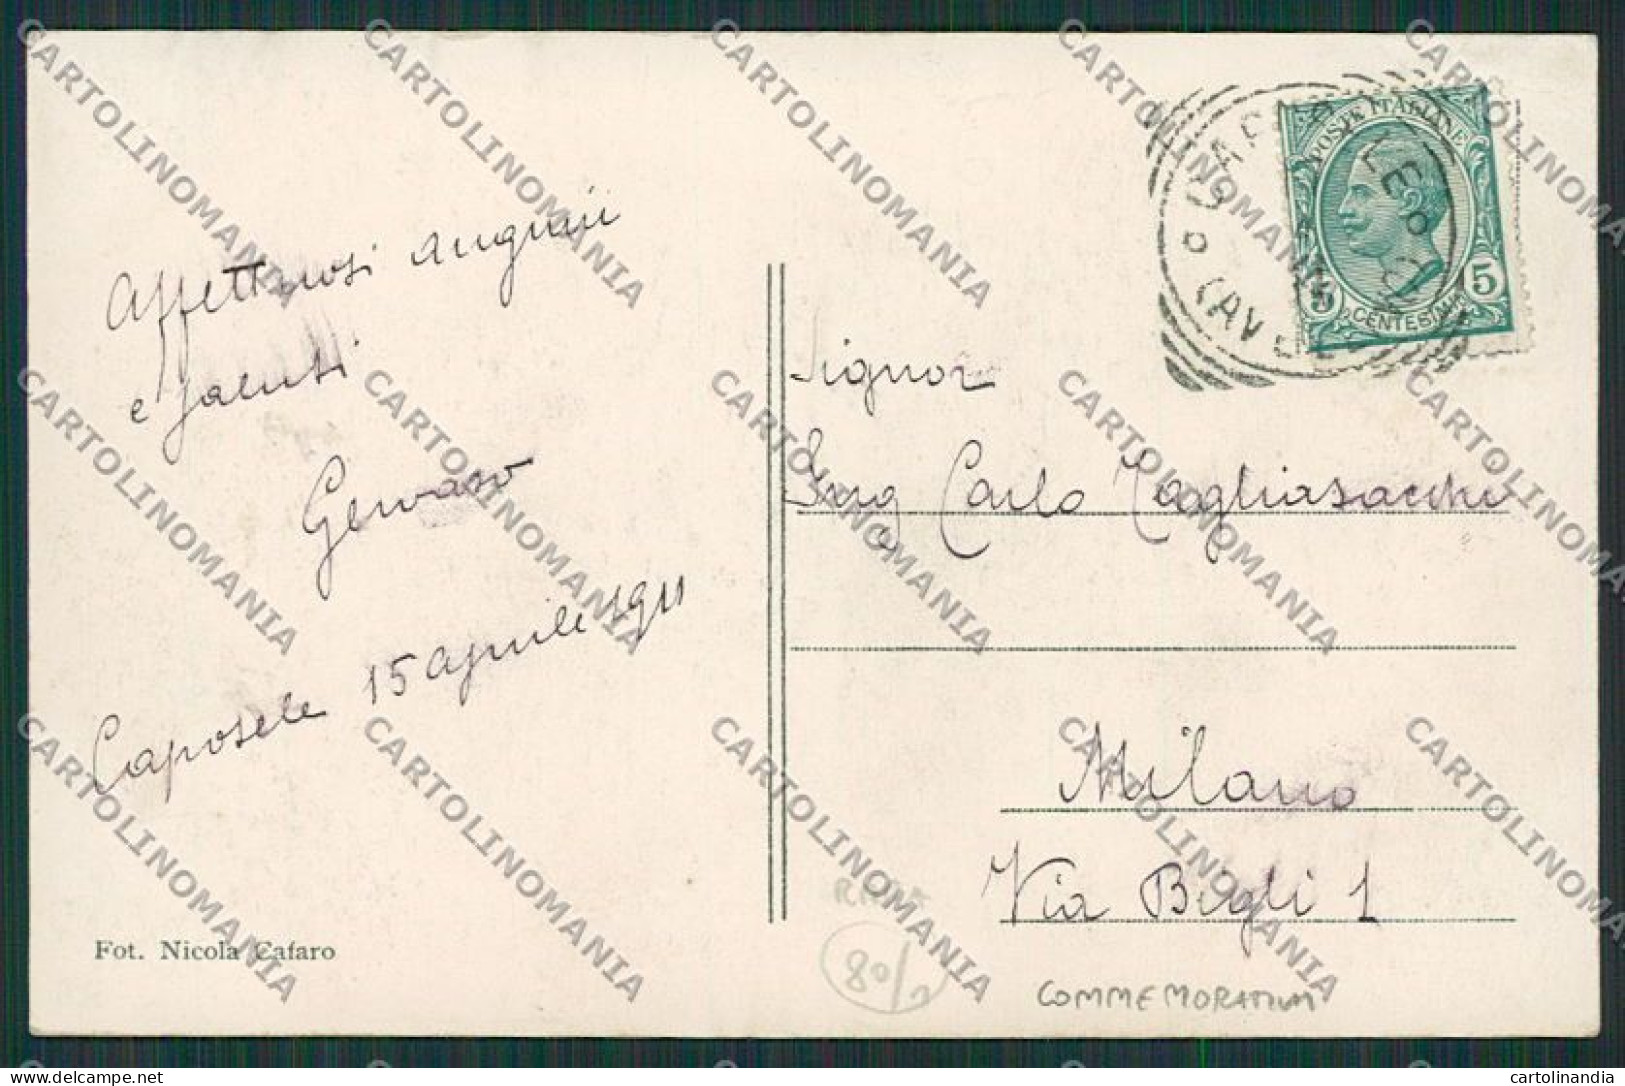 Affettuosi auguri
e saluti
Gervaso
Caposele 15 aprile 1911
Fot. Nicola Cafaro
POSTE ITALIANE
5
5
CENTESIMI
Signor
Ing Carlo Tagliasacchi
Milano
Via Bigli 1
80/
COMMEMORATIVA
CARTOLINOMANIA
delcampe.net
cartolinandia